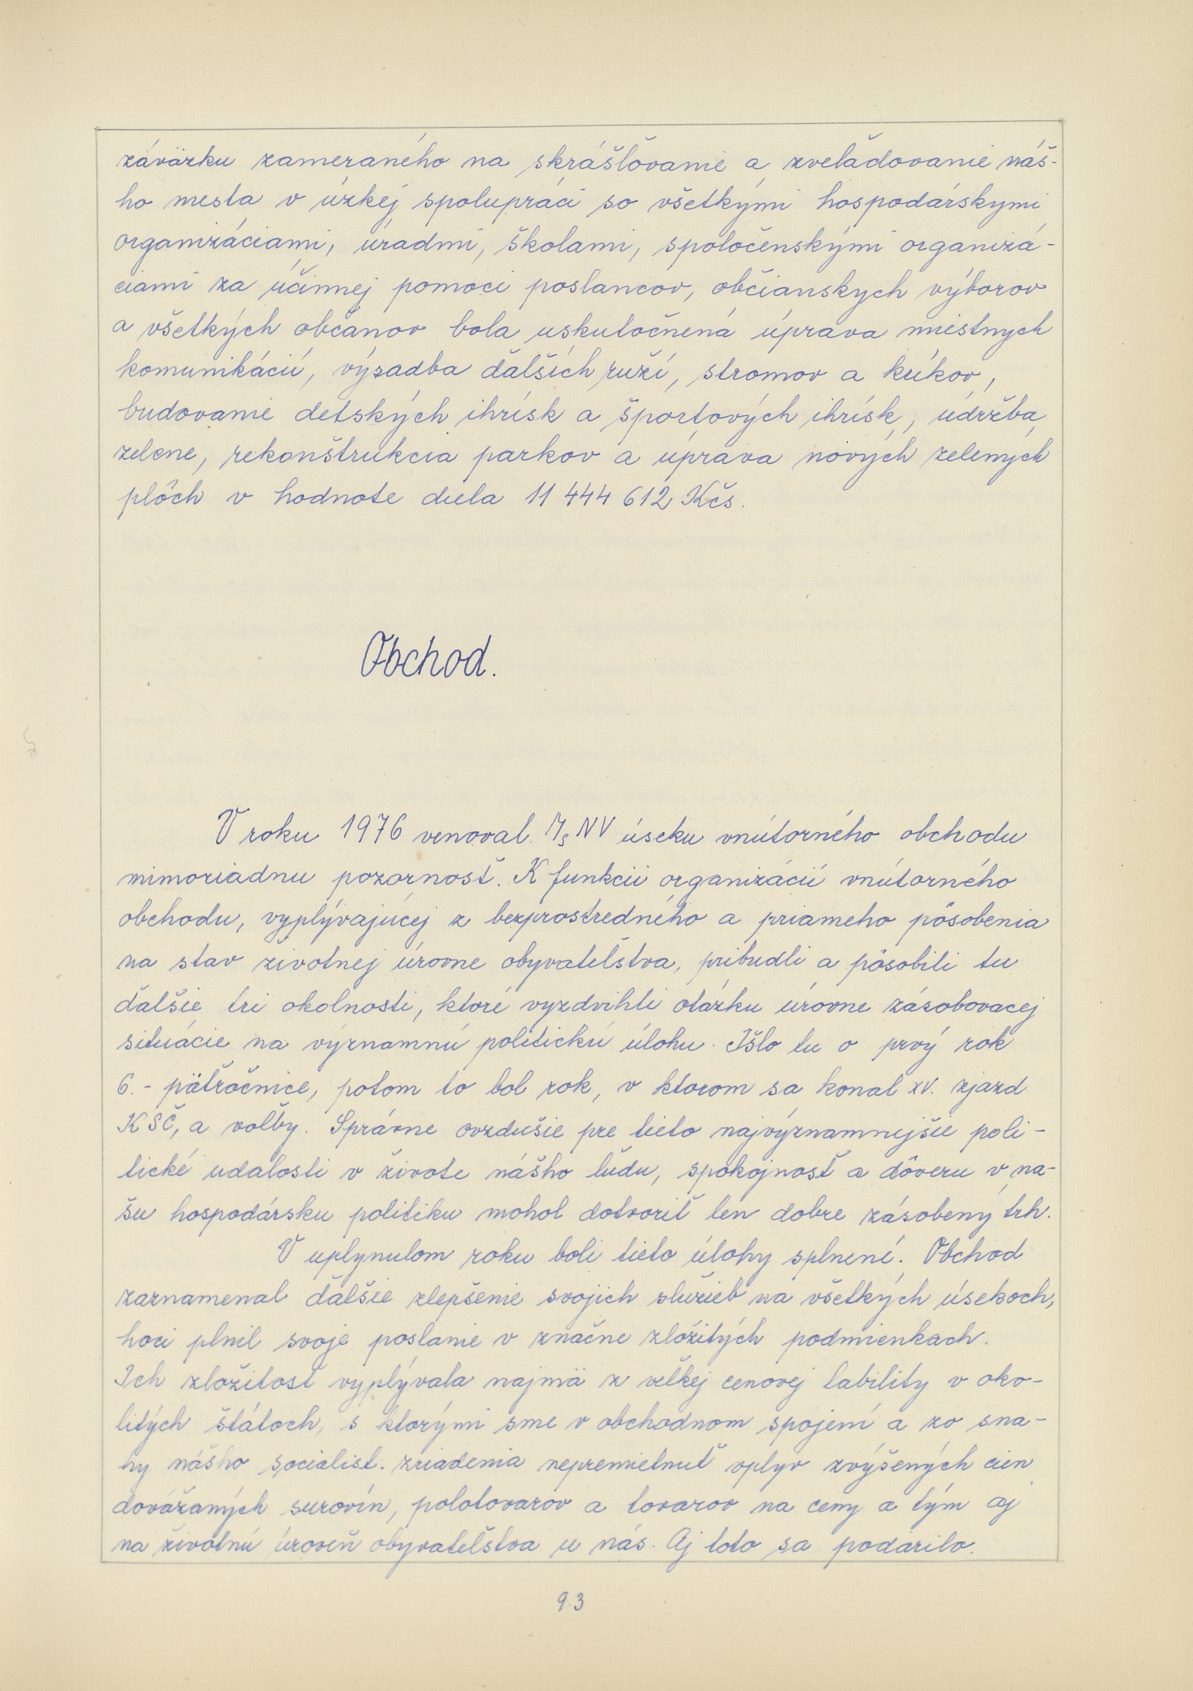 záväzku zameraného na skrášľovanie a zveľaďovanie náš-
ho mesta v úzkej spolupráci so všetkými hospodárskymi
organizáciami, úradmi, školami, spoločenskými organizá-
ciami za účinnej pomoci poslancov, občianskych výborov
a všetkých občanov bola uskutočnená úprava miestnych
komunikácií, výsadba ďalších ruží, stromov a kŕkov,
budovanie detských ihrísk a športových ihrísk, údržba
zelene, rekonštrukcia parkov a úprava nových zelených
plôch v hodnote diela 11 444 612 Kčs.
Obchod.
V roku 1976 venoval MsNV úseku vnútorného obchodu
mimoriadnu pozornosť. K funkcii organizácií vnútorného
obchodu, vyplývajúcej z bezprostredného a priameho pôsobenia
na stav životnej úrovne obyvateľstva, pribudli a pôsobili tu
ďalšie tri okolnosti, ktoré vyzdvihli otázku úrovne zásobovacej
situácie na významnú politickú úlohu. Išlo tu o prvý rok
6.- päťročnice, potom to bol rok, v ktorom sa konal XV. zjazd
KSČ, a voľby. Správne ovzdušie pre tieto najvýznamnejšie poli-
tické udalosti v živote nášho ľudu, spokojnosť a dôveru v na-
šu hospodársku politiku mohol dotvoriť len dobre zásobený trh.
V uplynulom roku boli tieto úlohy splnené. Obchod
zaznamenal ďalšie zlepšenie svojich služieb na všetkých úsekoch,
hoci plnil svoje poslanie v značne zložitých podmienkach.
Ich zložitosť vyplývala najmä z veľkej cenovej lability v oko-
litých štátoch, s ktorými sme v obchodnom spojení a zo sna-
hy nášho socialist. zriadenia nepremietnuť vplyv zvýšených cien
dovážaných surovín, polotovarov a tovarov na ceny a tým aj
na životnú úroveň obyvateľstva u nás. Aj toto sa podarilo.
93